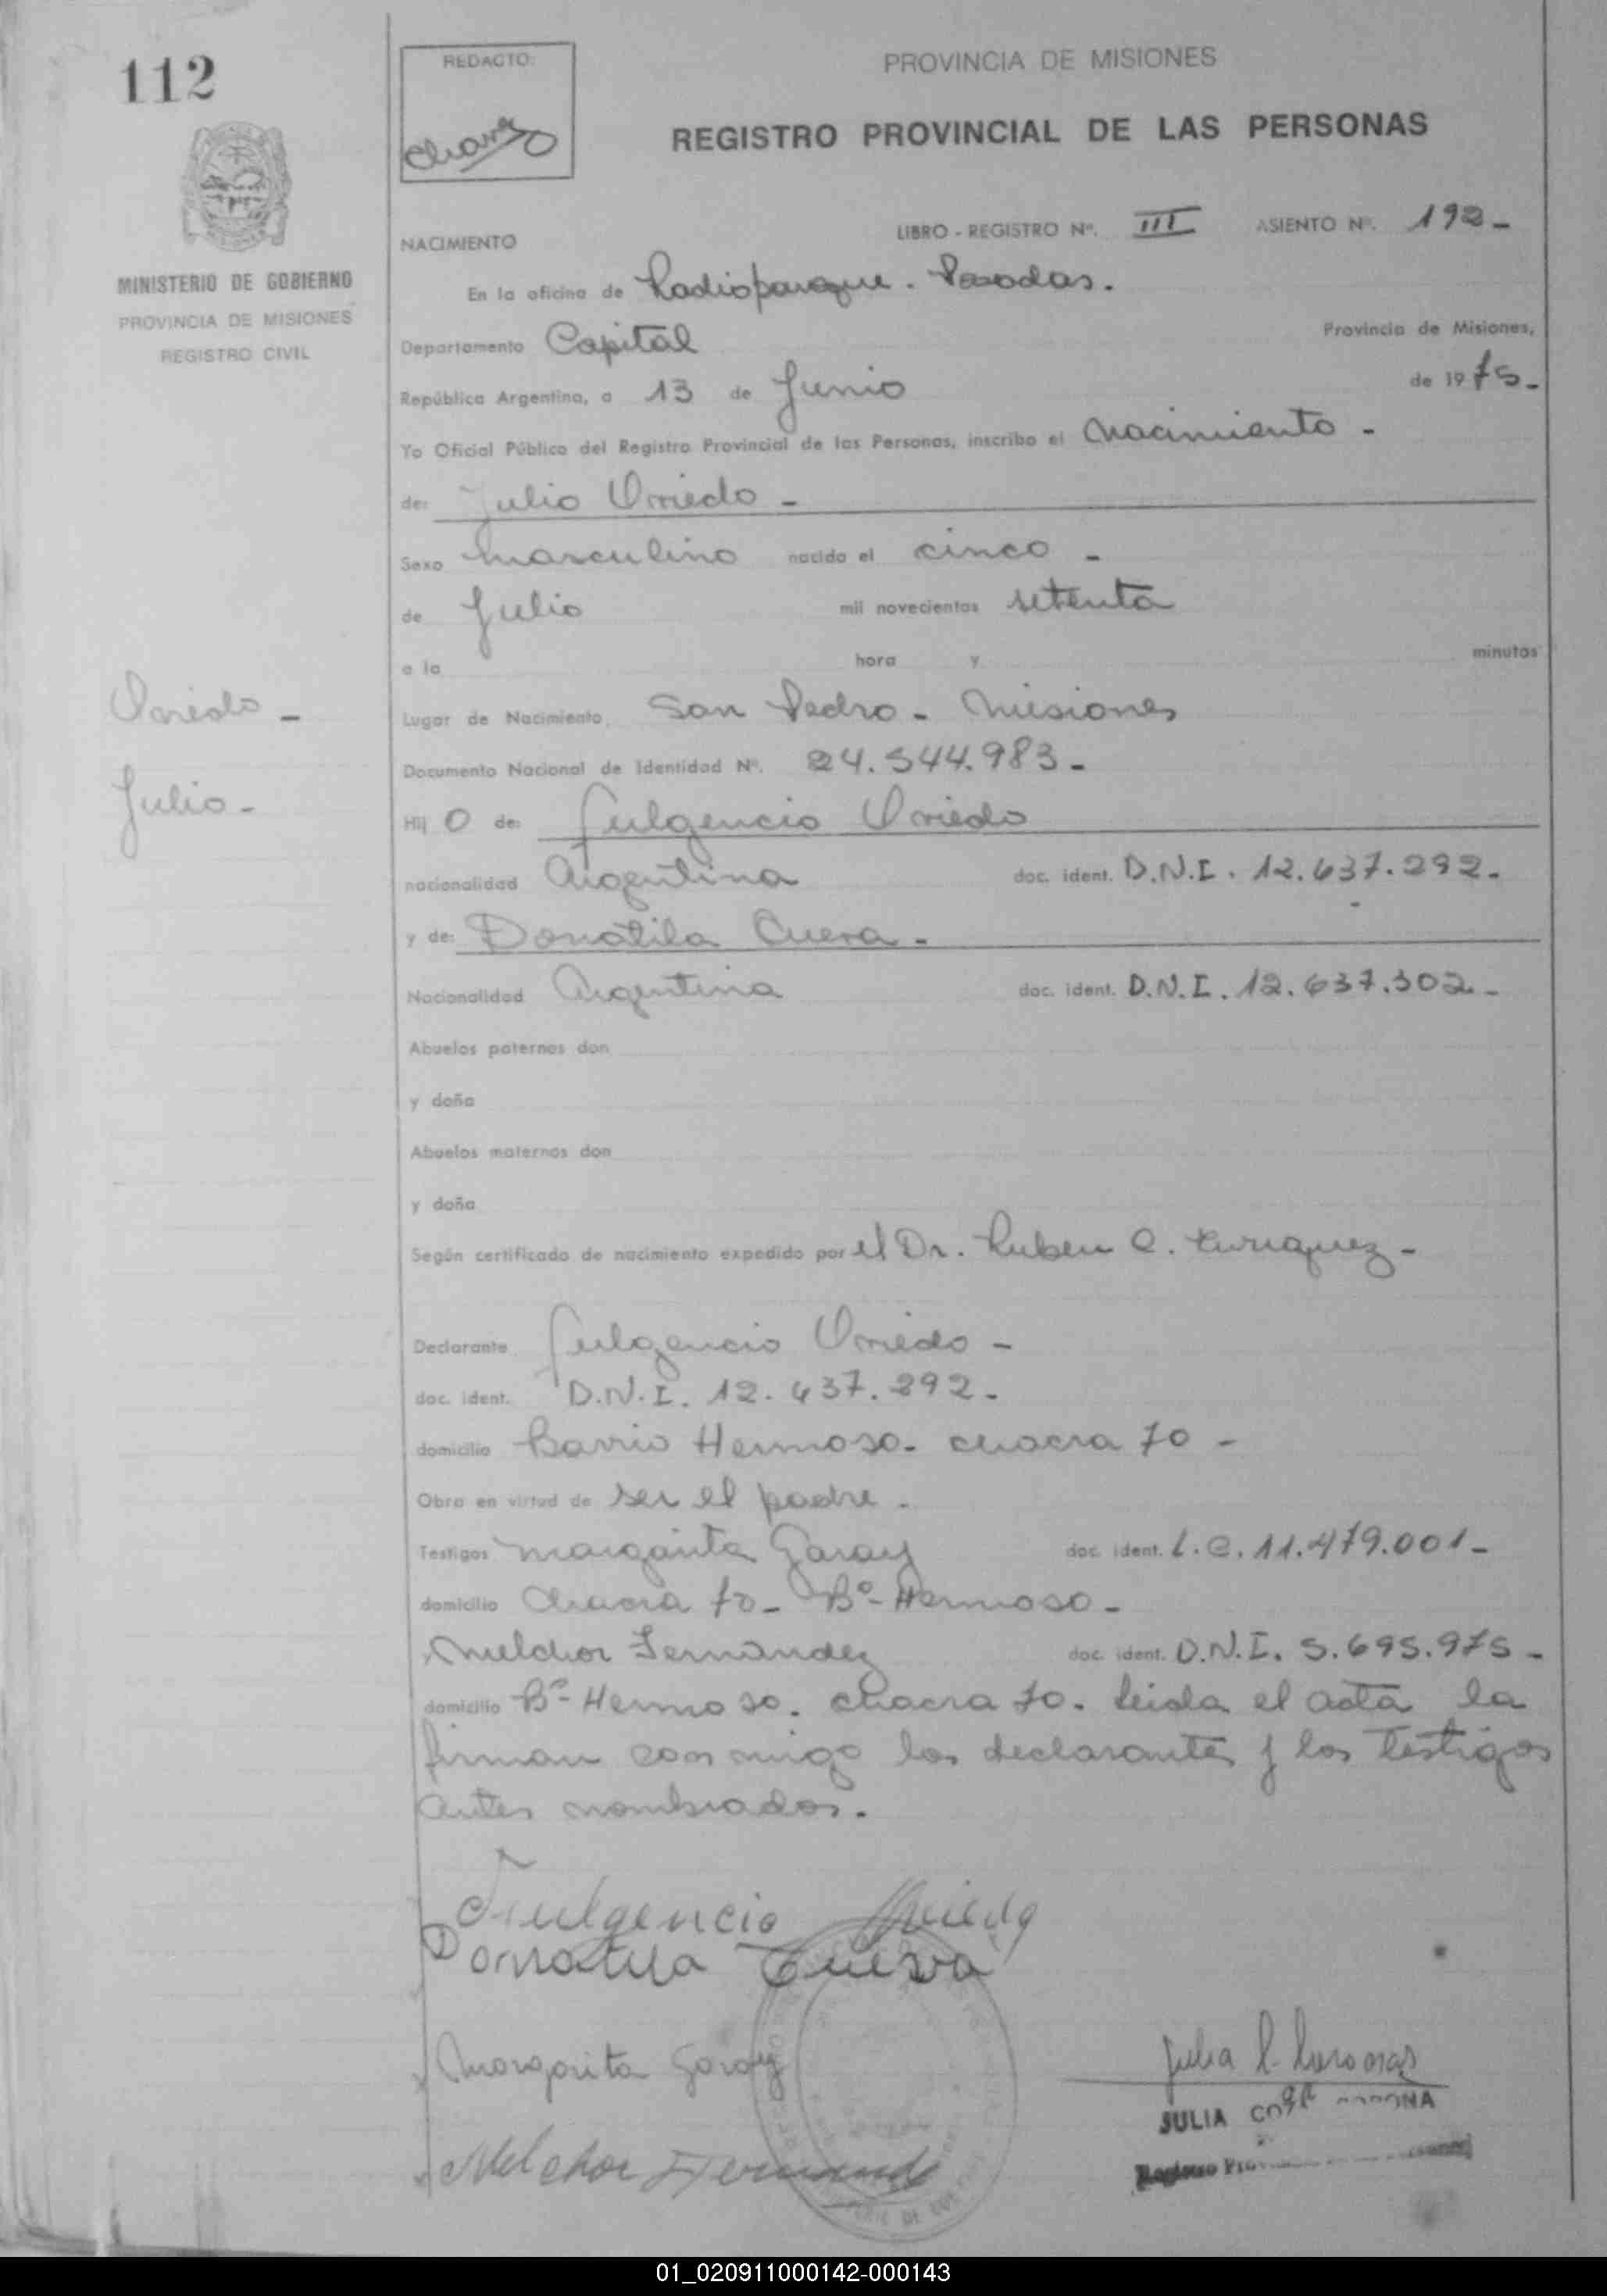 112
REDACTO:
PROVINCIA DE MISIONES
REGISTRO PROVINCIAL DE LAS PERSONAS
MINISTERIO DE GOBIERNO
PROVINCIA DE MISIONES
REGISTRO CIVIL
NACIMIENTO
LIBRO - REGISTRO Nº. III ASIENTO Nº. 192-
En la oficina de Radioparque. Posadas.
Departamento Capital Provincia de Misiones,
República Argentina, a 13 de Junio de 1975-
Yo Oficial Público del Registro Provincial de las Personas, inscribo el Nacimiento -
de: Julio Oviedo -
Sexo Masculino nacido el cinco -
de Julio mil novecientos setenta
a la hora y minutos
Oviedo -
Julio -
Lugar de Nacimiento, San Pedro - Misiones
Documento Nacional de Identidad Nº. 24.544.983-
Hij o de: Fulgencio Oviedo
nacionalidad Argentina doc. ident. D.N.I. 12.637.292-
y de: Donatila Cueva -
Nacionalidad Argentina doc. ident. D.N.I. 12.637.302-
Abuelos paternos don
y doña
Abuelos maternos don
y doña
Según certificado de nacimiento expedido por el Dr. Ruben C. Enriquez -
Declarante Fulgencio Oviedo -
doc. ident. D.N.I. 12.637.292-
domicilio Barrio Hermoso - chacra 70 -
Obra en virtud de ser el padre.
Testigos Margarita Garay doc. ident. L.C. 11.479.001-
domicilio Chacra 70- Bº- Hermoso-
Melchor Fernandez doc. ident. D.N.I. 5.695.975-
domicilio Bº- Hermoso. chacra 70. Leida el acta la
firman conmigo los declarantes y los testigos
antes nombrados.
Fulgencio Oviedo
Donatila Cueva
Margarita Garay
Melchor Fernande
JULIA
Registro
01_020911000142-000143